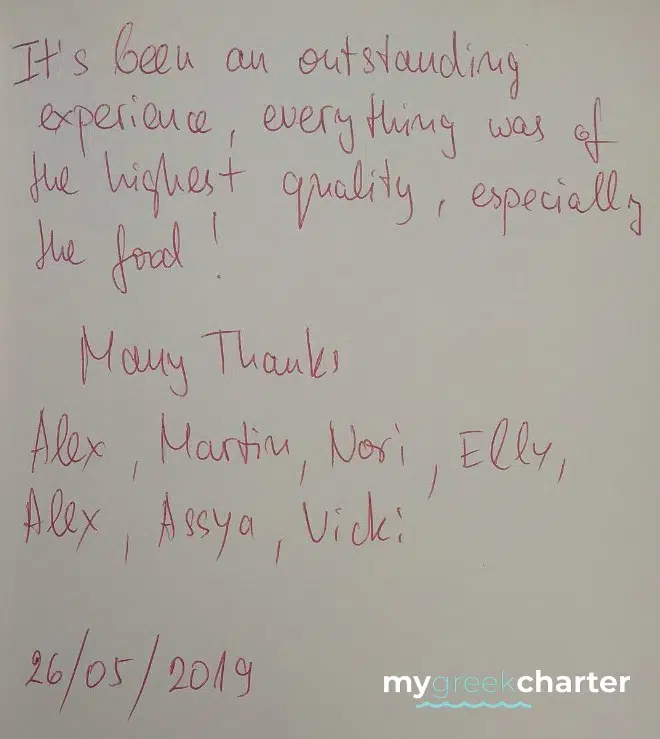 It's been an outstanding
experience, everything was of
the highest quality, especially
the food!
Many Thanks
Alex, Martin, Nori, Elly,
Alex, Assya, Vicki
26/05/2019
mygreekcharter